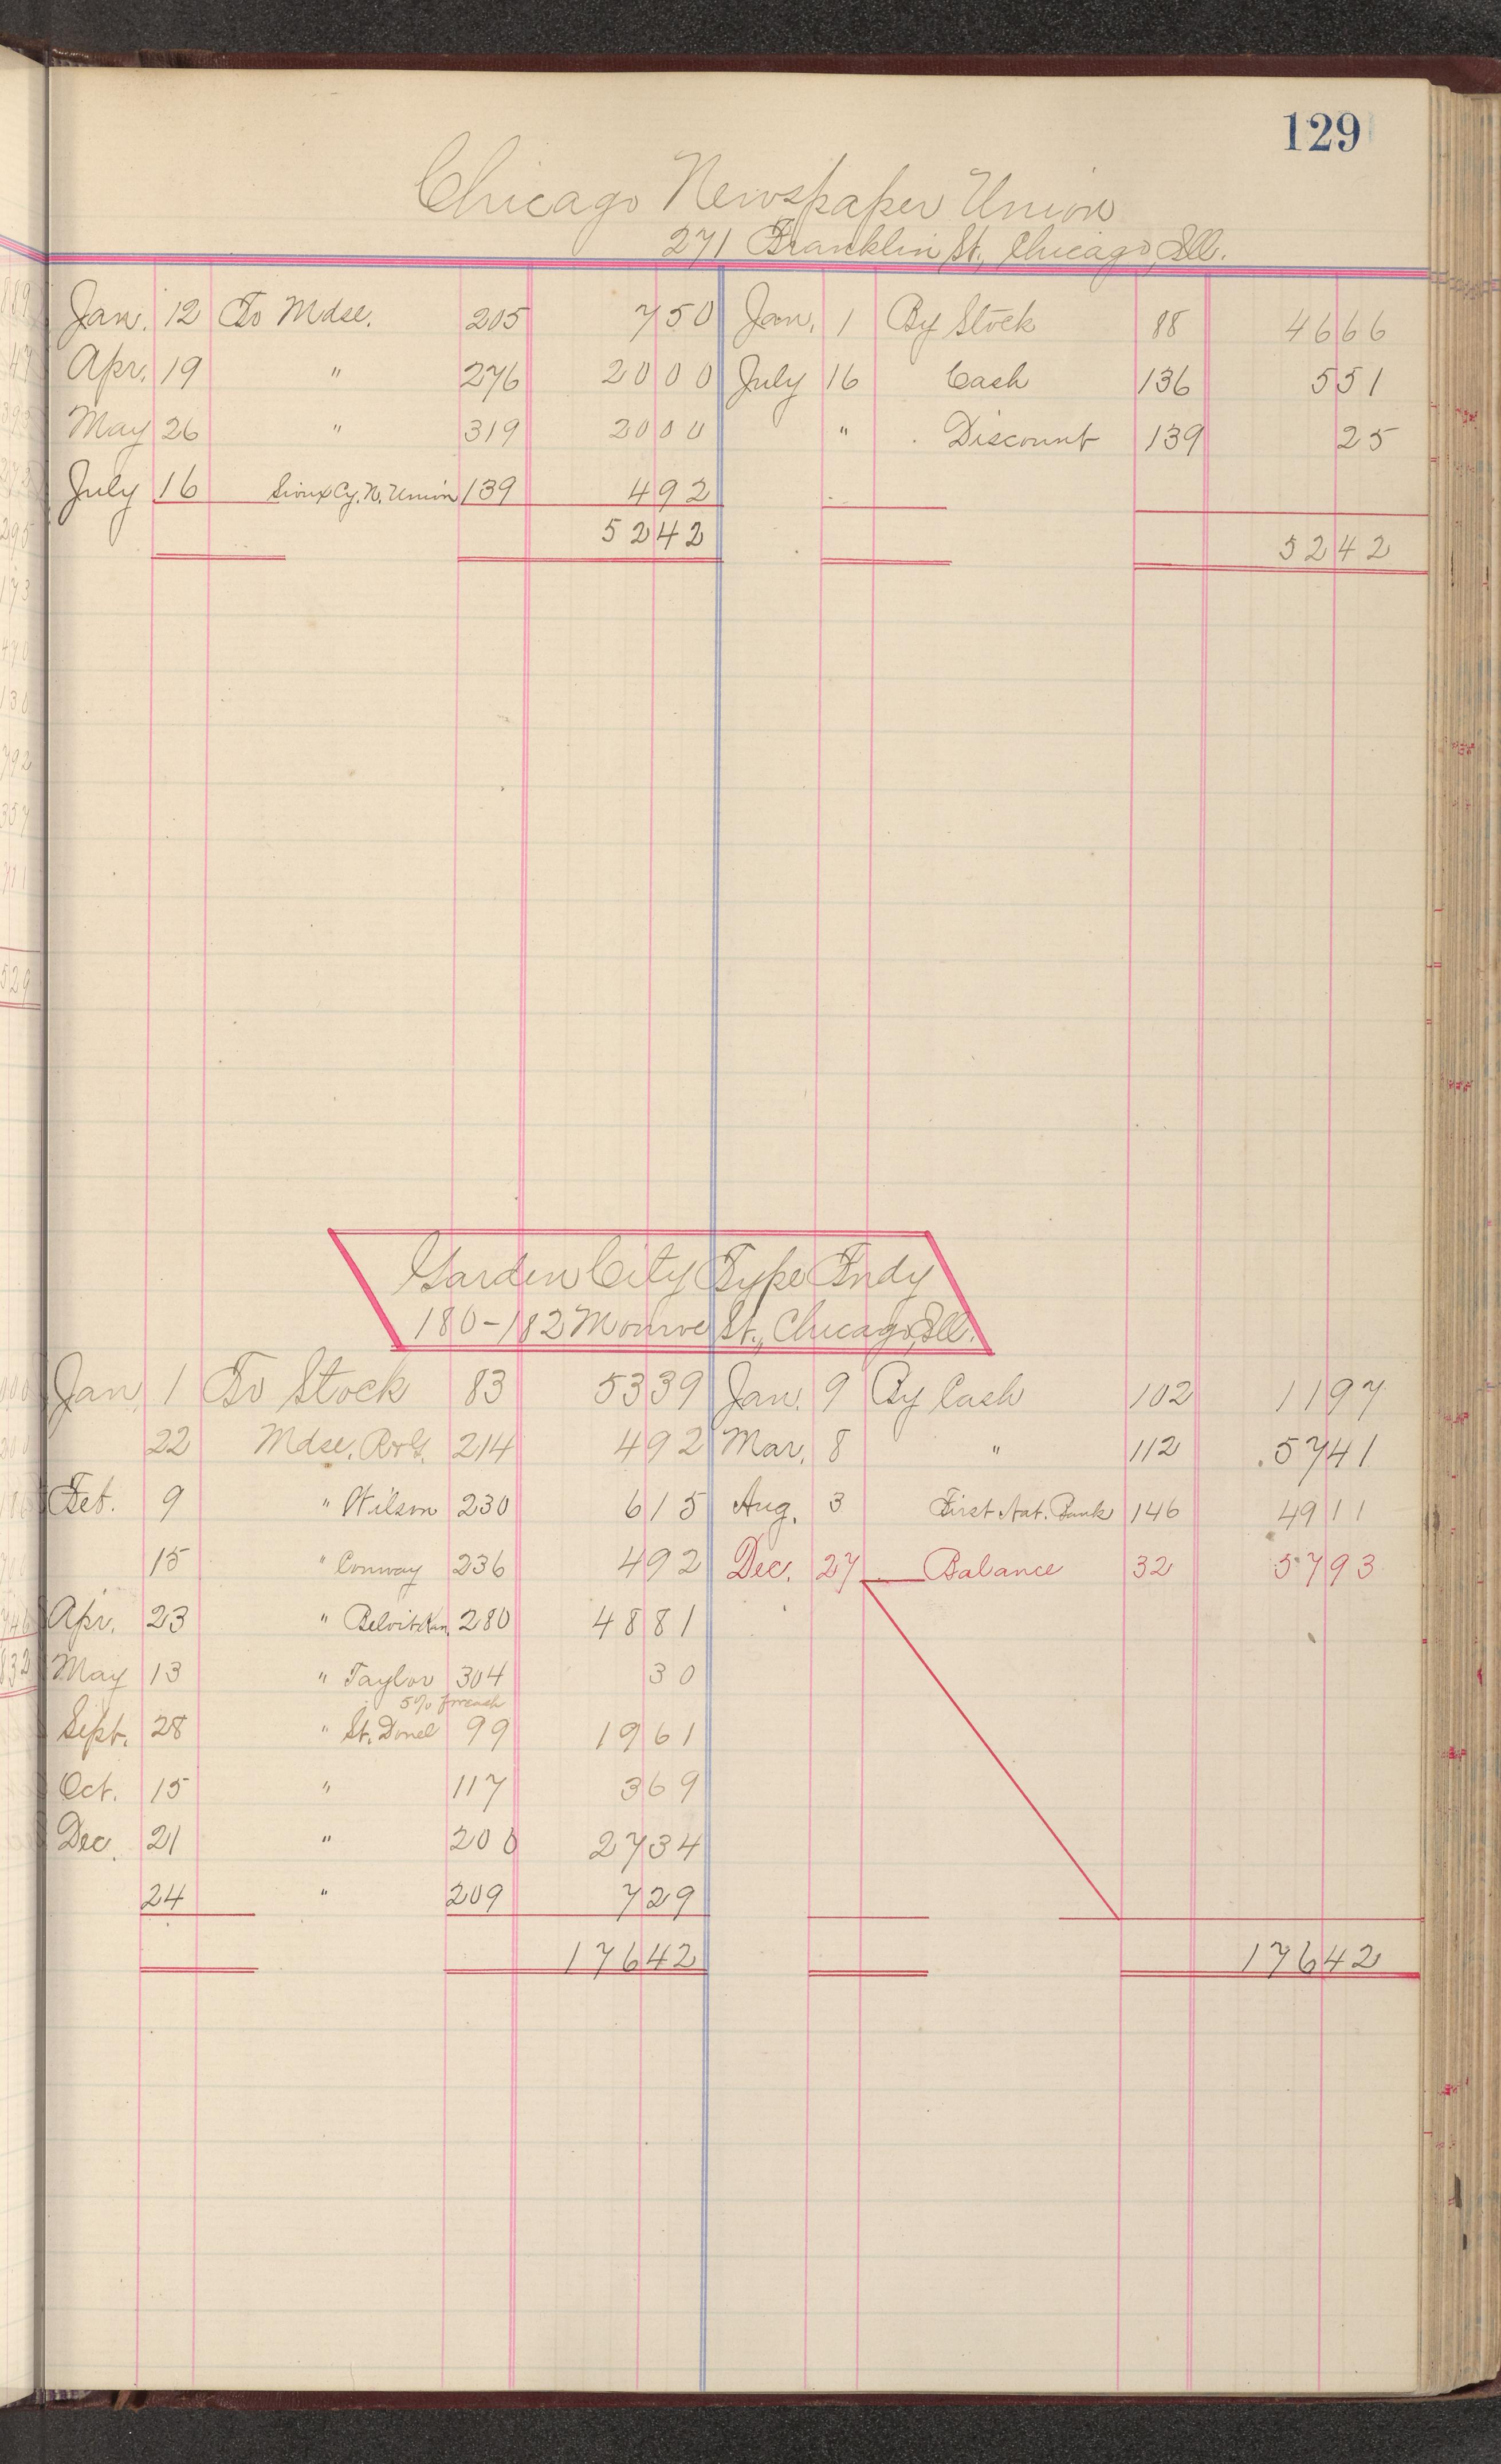 129
Chicago Newspaper Union
271 Franklin St., Chicago, Ill.
Jan. 12 To Mdse. 205 7 50 Jan. 1 By Stock 88 46 66
Apr. 19 " 276 20 00 July 16 Cash 136 5 51
May 26 " 319 20 00 " Discount 139 25
July 16 Sioux Cy. N. Union 139 4 92
52 42 52 42
Garden City Type Fndy
180-182 Monroe St., Chicago, Ill.
Jan. 1 To Stock 83 53 39 Jan. 9 By Cash 102 11 97
22 Mdse. 214 4 92 Mar. 8 " 112 57 41
Feb. 9 " Wilson 230 6 15 Aug. 3 First Nat. Bank 146 49 11
15 " Conway 236 4 92 Dec. 27 Balance 32 57 93
Apr. 23 " Beloit Kan. 280 48 81
May 13 " Taylor 304 30
5% for cash
Sept. 28 " St. Donel 99 19 61
Oct. 15 " 117 3 69
Dec. 21 " 200 27 34
24 " 209 7 29
176 42 176 42